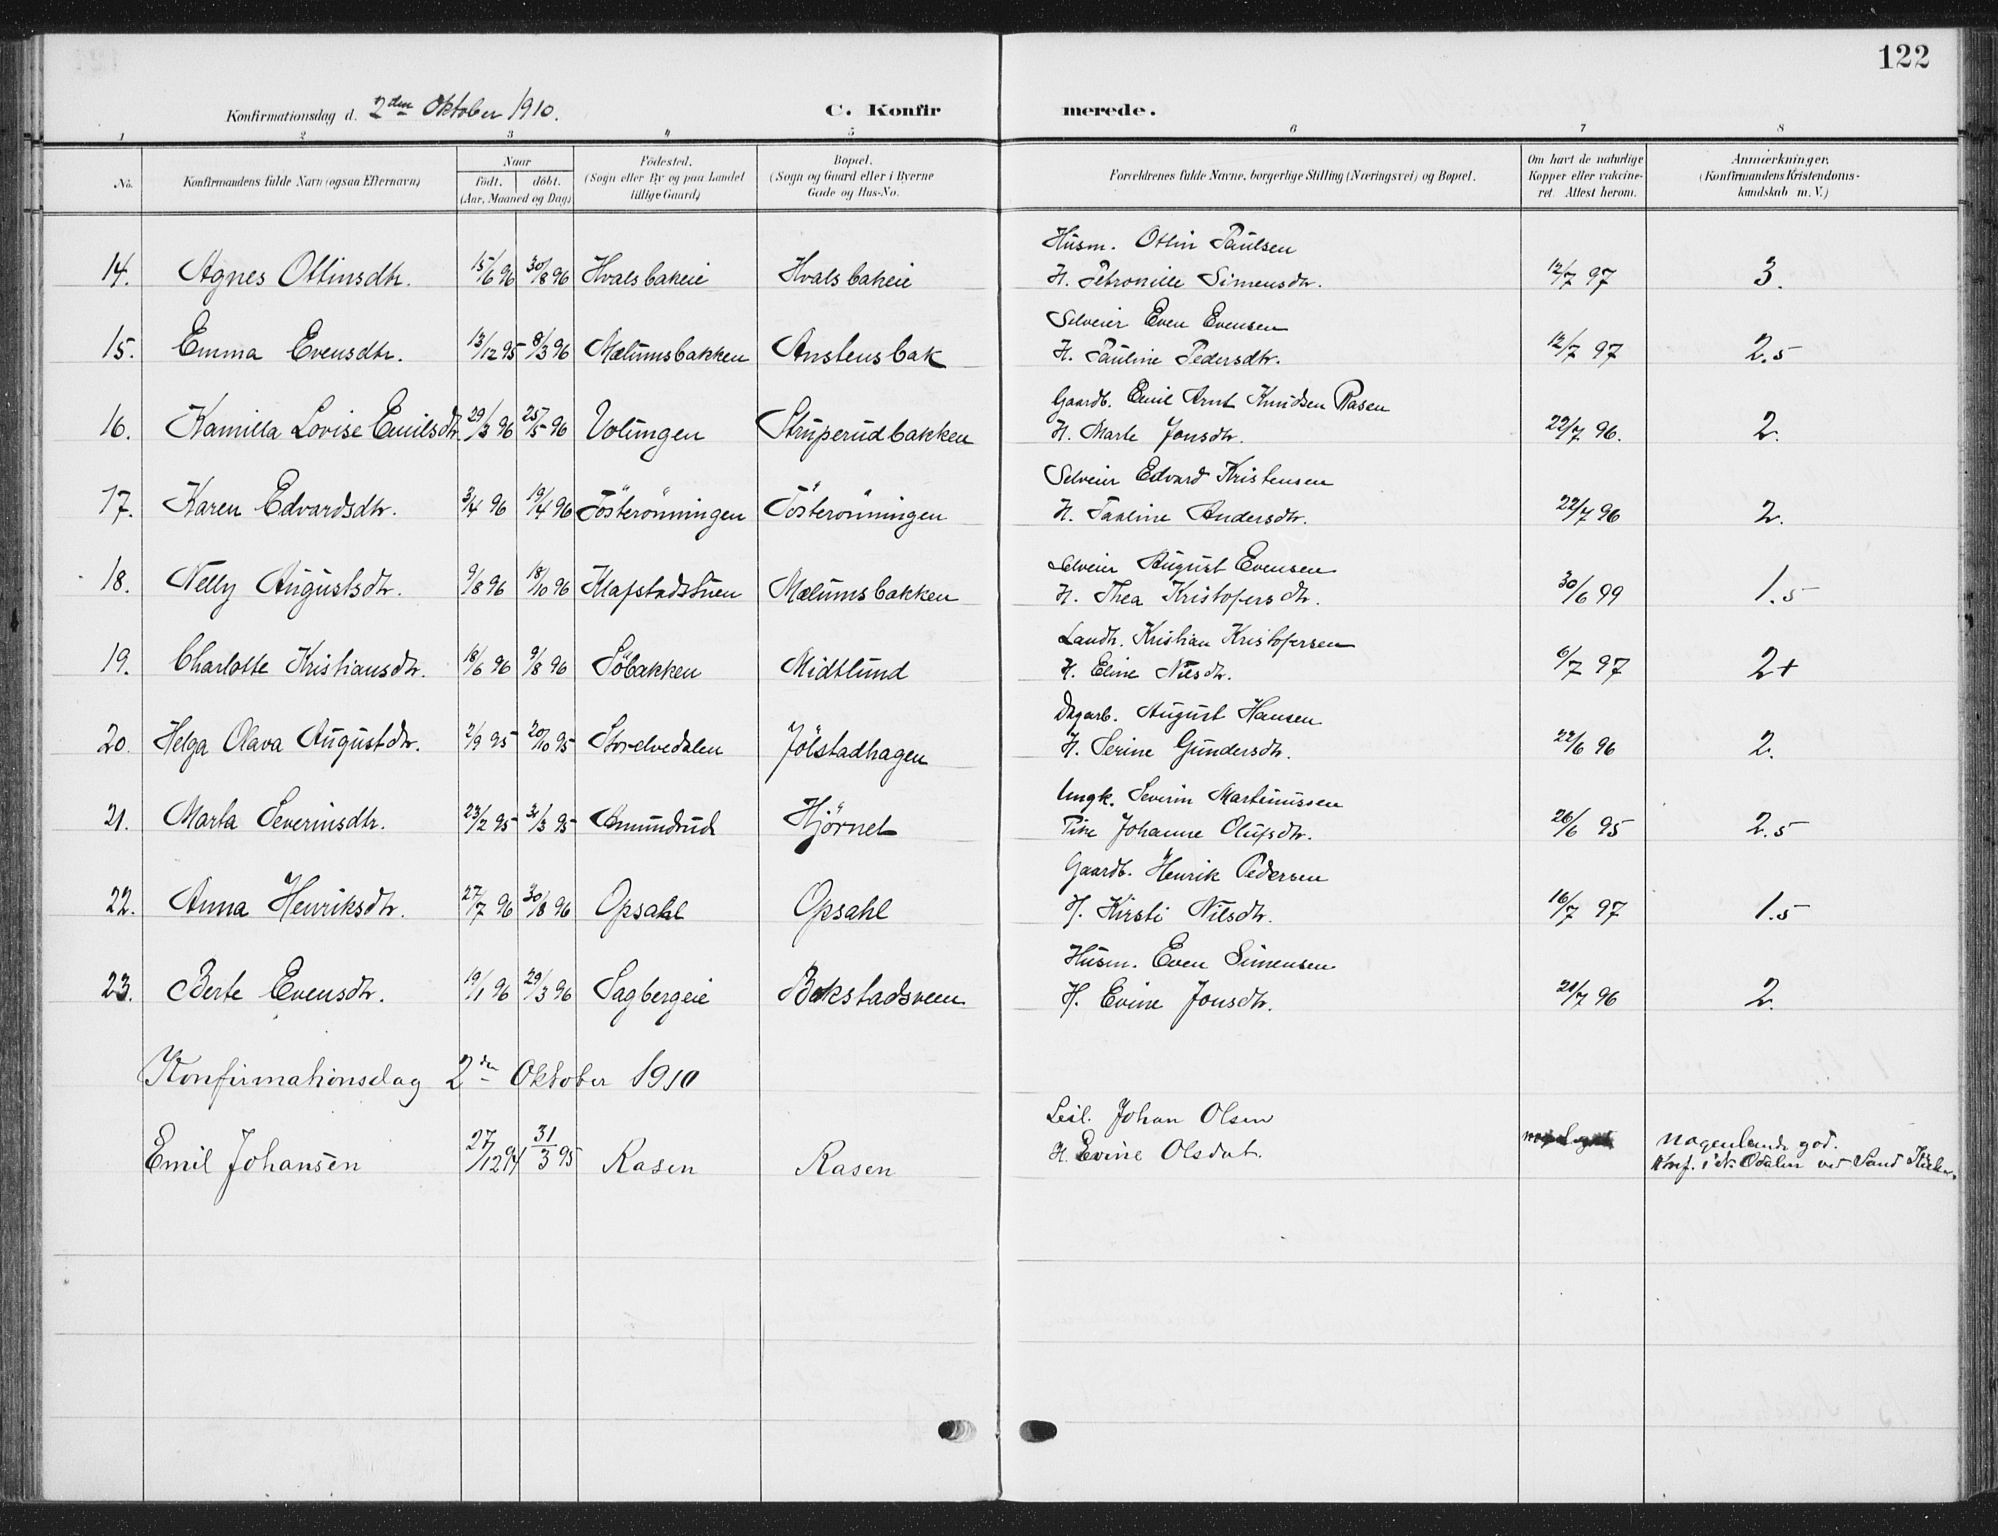 122
Konfirmationsdag d. 2den Oktober 1910. C. Konfirmerede.
1 2 3 4 5 6 7 8
No. Konfirmandens fulde Navn (ogsaa Efternavn) Naar födt. döbt. (Aar, Maaned og Dag) Födested. (Sogn eller By og paa Landet tillige Gaard) Bopæl. (Sogn og Gaard eller i Byerne Gade og Hus-No. Forældrenes fulde Navne, borgerlige Stilling (Næringsvei) og Bopæl. Om havt de naturlige Kopper eller vakcineret. Attest herom. Anmærkninger. (Konfirmandens Kristendomskundskab m. V.)
Husm. Ottin Paulsen
14. Agnes Ottinsdtr. 15/6 96 30/8 96 Hvalsbakeie Hvalsbakeie H. Petronille Simensdtr. 12/7 97 3.
Selveier Even Evensen
15. Emma Evensdtr. 13/12 95 8/3 96 Mælumsbakken Anstensbak H. Pauline Pedersdtr. 12/7 97 2.5
Gaardb. Emil Arnt Knudsen Rasen
16. Kamilla Lovise Emilsdtr. 29/3 96 25/5 96 Volungen Struperudbakken H. Marte Jonsdtr. 22/7 96. 2.
Selveier Edvard Kristensen
17. Karen Edvardsdtr. 3/4 96 19/4 96 Tösterönningen Tösterönningen H. Pauline Andersdtr. 22/7 96 2.
Selveier August Evensen
18. Nelly Augustsdtr. 9/8 96 18/10 96 Klafstadstuen Mælumsbakken H. Thea Kristofersdtr. 30/6 99 1.5
Landh. Kristian Kristofersen
19. Charlotte Kristiansdtr. 18/6 96 9/8 96 Söbakken Midtlund H. Eline Nilsdtr. 6/7 97 2+
Dagarb. August Hansen
20. Helga Olava Augustdtr. 2/9 95 20/10 95 Storelvedalen Jölstadhagen H. Serine Gundersdtr. 22/6 96 2.
Ungk. Severin Martinussen
21. Marta Severinsdtr. 23/2 95 31/3 95 Amundrud Hjörnet Pike Johanne Olufsdtr. 26/6 95 2.5
Gaardb. Henrik Pedersen
22. Anna Henriksdtr. 27/7 96 30/8 96 Opsahl Opsahl H. Kirsti Nilsdtr. 16/7 97 1.5
Husm. Even Simensen
23. Berte Evensdtr. 19/1 96 29/3 96 Sagbergeie Bokstadsveen H. Evine Jonsdtr. 21/7 96 2.
Konfirmationsdag 2den Oktober 1910
Leil. Johan Olsen
Emil Johansen 27/12 94 31/3 95 Rasen Rasen H. Evine Olsdat. nogenlunde god.
Konf. i N. Odalen ved Sand Kirke.